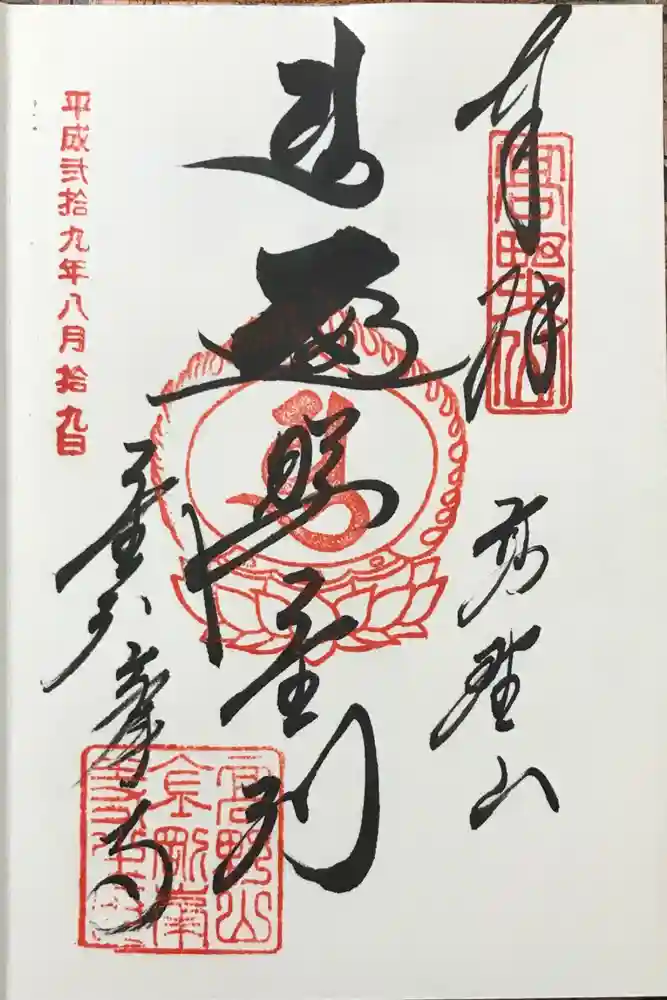 奉拝
高野山
高野山
遍照金剛
金剛峯寺
高野山
金剛峯
平成弐拾九年八月拾九日